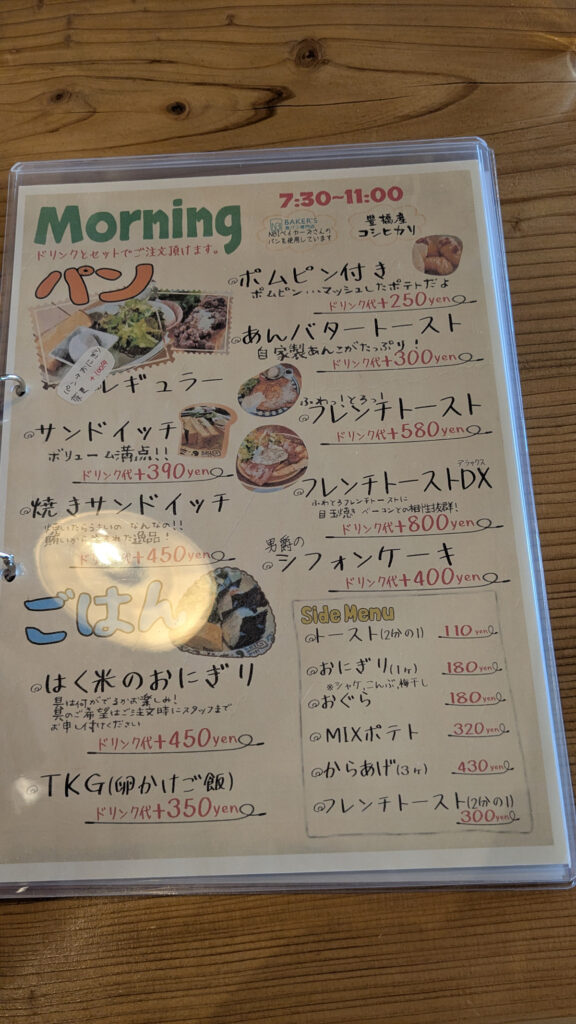 Morning
7:30~11:00
ドリンクとセットでご注文頂けます。
BAKER'S
パンを使用しています
豊橋産
コシヒカリ
パン
+100円
レギュラー
サンドイッチ
ボリューム満点!!
ドリンク代+390yen
焼きサンドイッチ
焼いたらうまいの なんなの!!
ドリンク代+450yen
ポムピン付き
ポムピン...マッシュしたポテトだよ
ドリンク代+250yen
あんバタートースト
自家製あんこがたっぷり!
ドリンク代+300yen
ふわっ!とろっ!
フレンチトースト
ドリンク代+580yen
デラックス
フレンチトーストDX
ふわとろフレンチトーストに
目玉焼き ベーコンとの相性抜群!
ドリンク代+800yen
男爵の
シフォンケーキ
ドリンク代+400yen
ごはん
はく米のおにぎり
具は何がでるかお楽しみ!
具のご希望はご注文時にスタッフまで
お申し付けください
ドリンク代+450yen
TKG(卵かけご飯)
ドリンク代+350yen
Side Menu
トースト(2分の1) 110yen
おにぎり(1ヶ) 180yen
※シャケ、こんぶ、梅干し
おぐら 180yen
MIXポテト 320yen
からあげ(3ヶ) 430yen
フレンチトースト(2分の1)
300yen